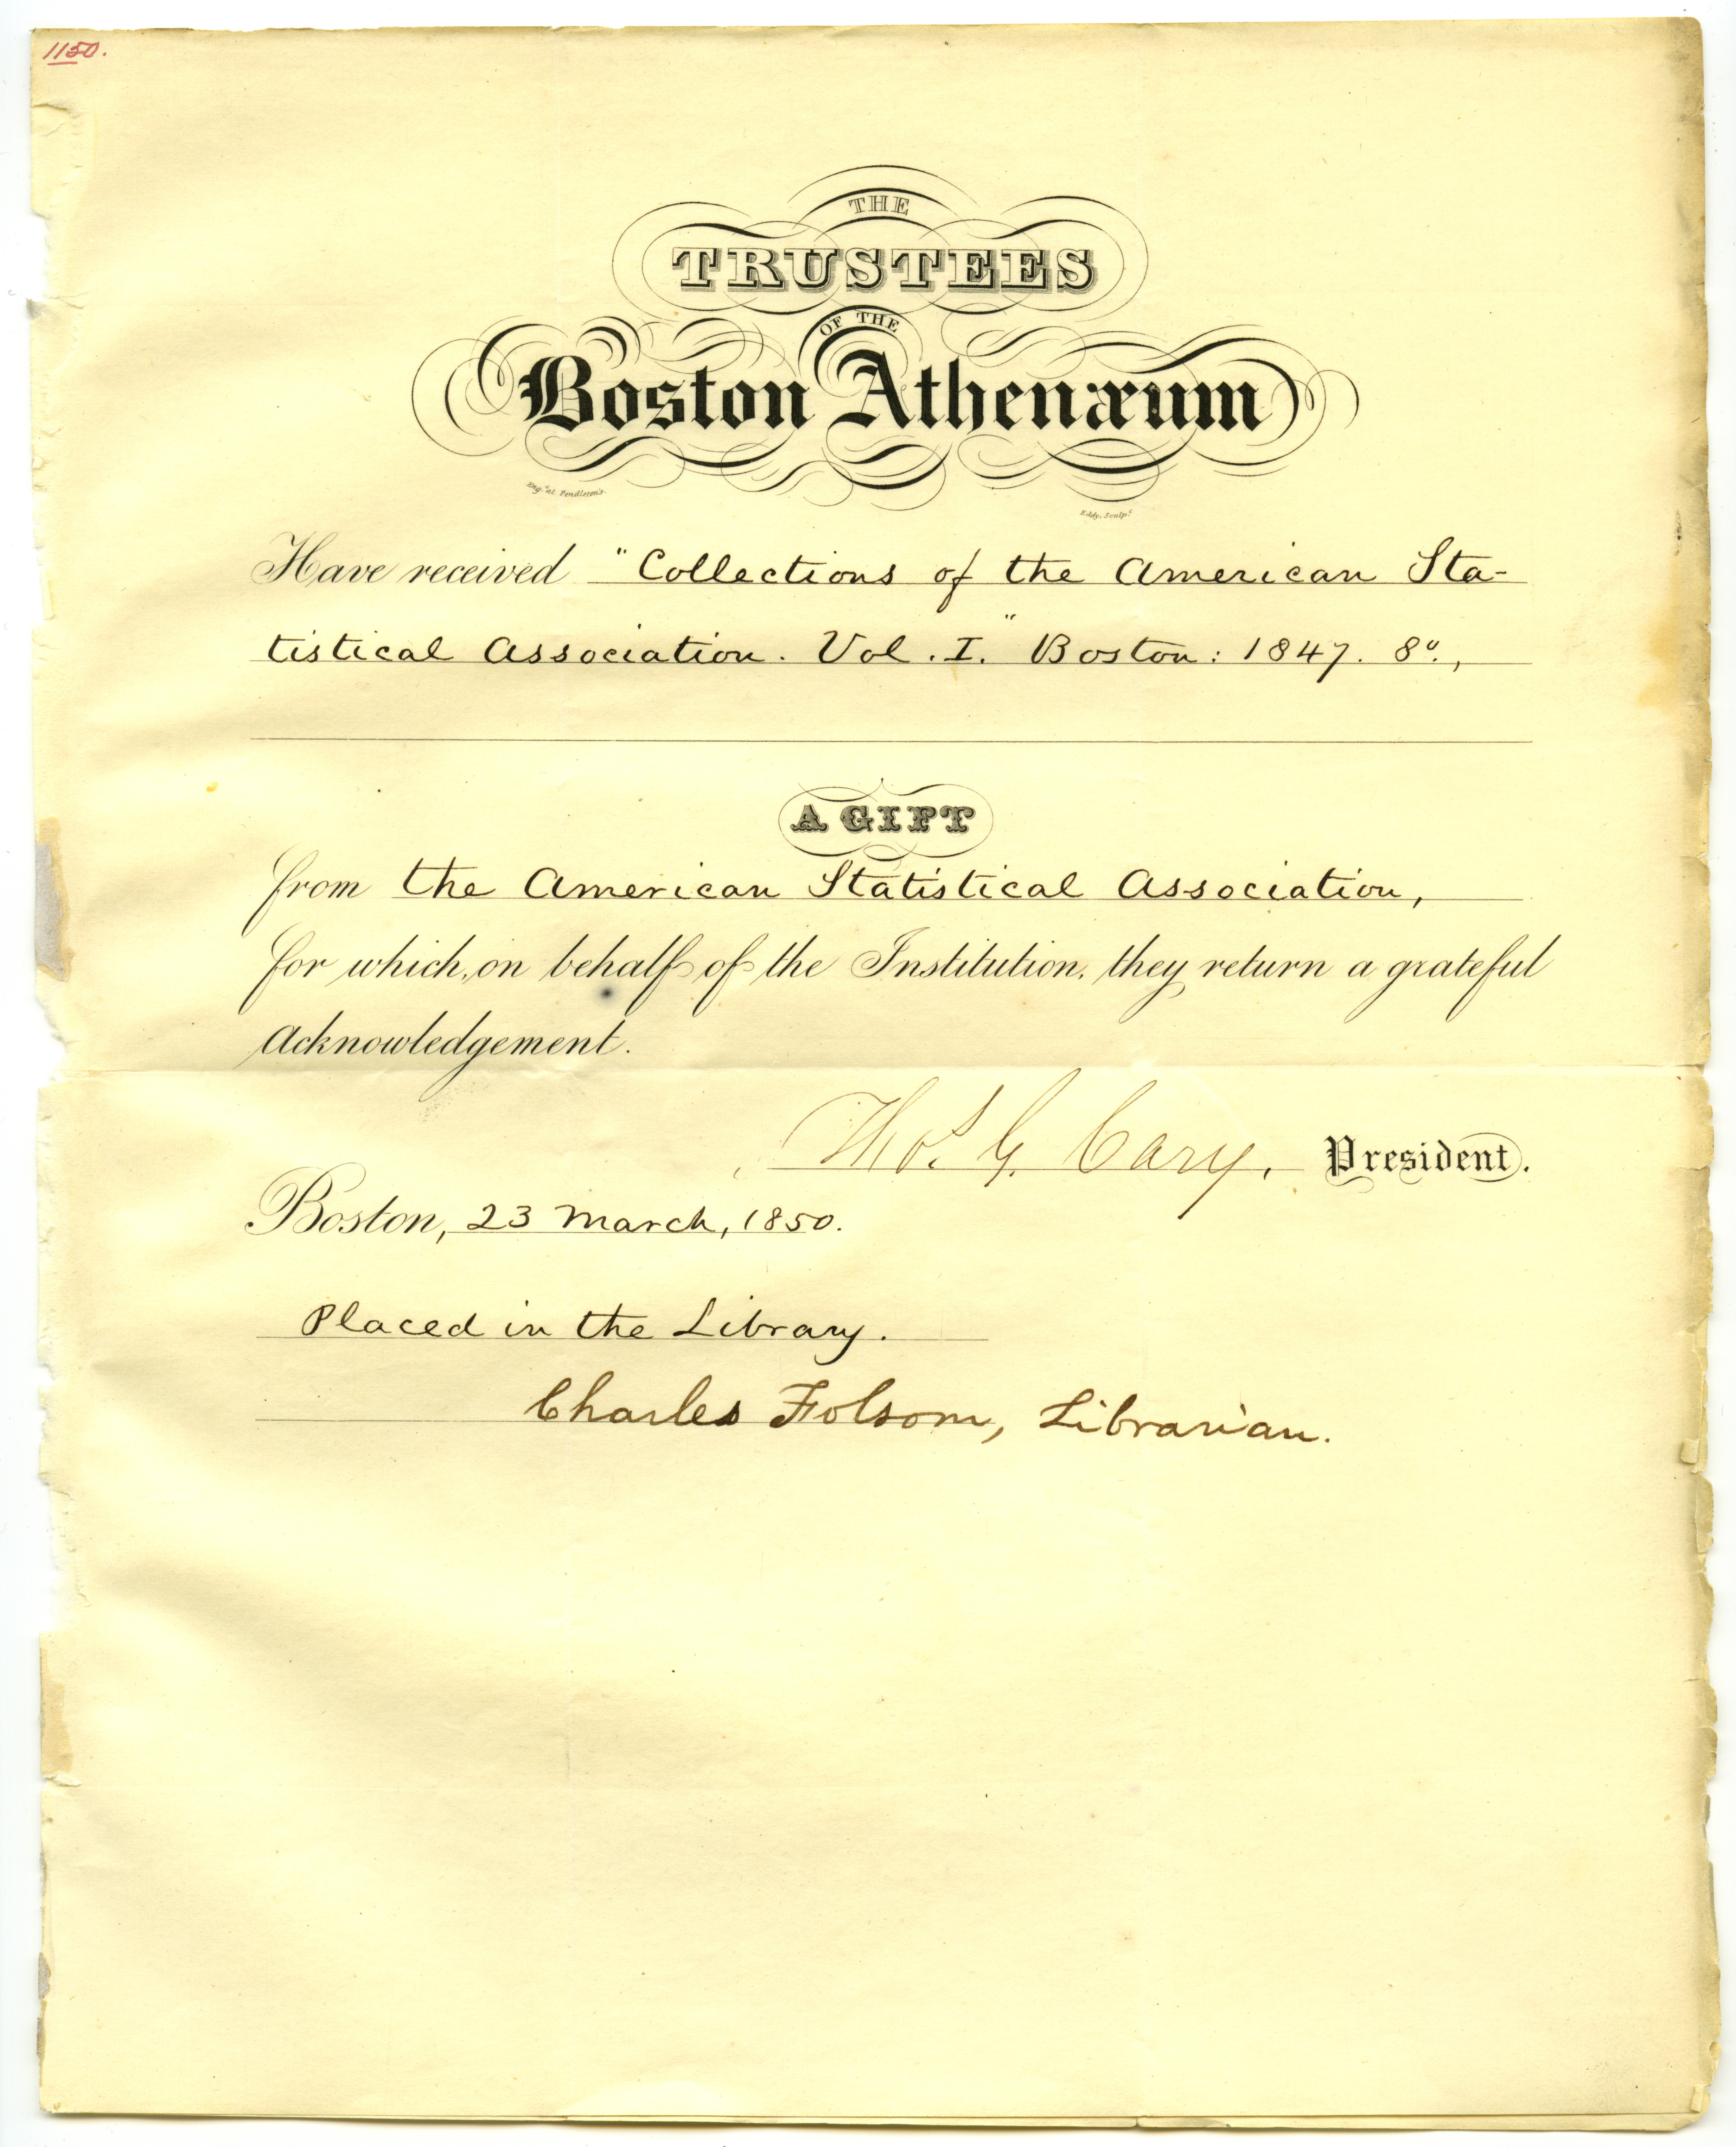 1150.
THE
TRUSTEES
OF THE
Boston Athenæum
Eng.d at Pendleton's.
Eddy, Sculp.t
Have received "Collections of the American Sta-
tistical Association. Vol. I." Boston: 1847. 8º.,
A GIFT
from the American Statistical Association,
for which, on behalf of the Institution, they return a grateful
Acknowledgement.
Thos. G. Cary, President.
Boston, 23 March, 1850.
Placed in the Library.
Charles Folsom, Librarian.